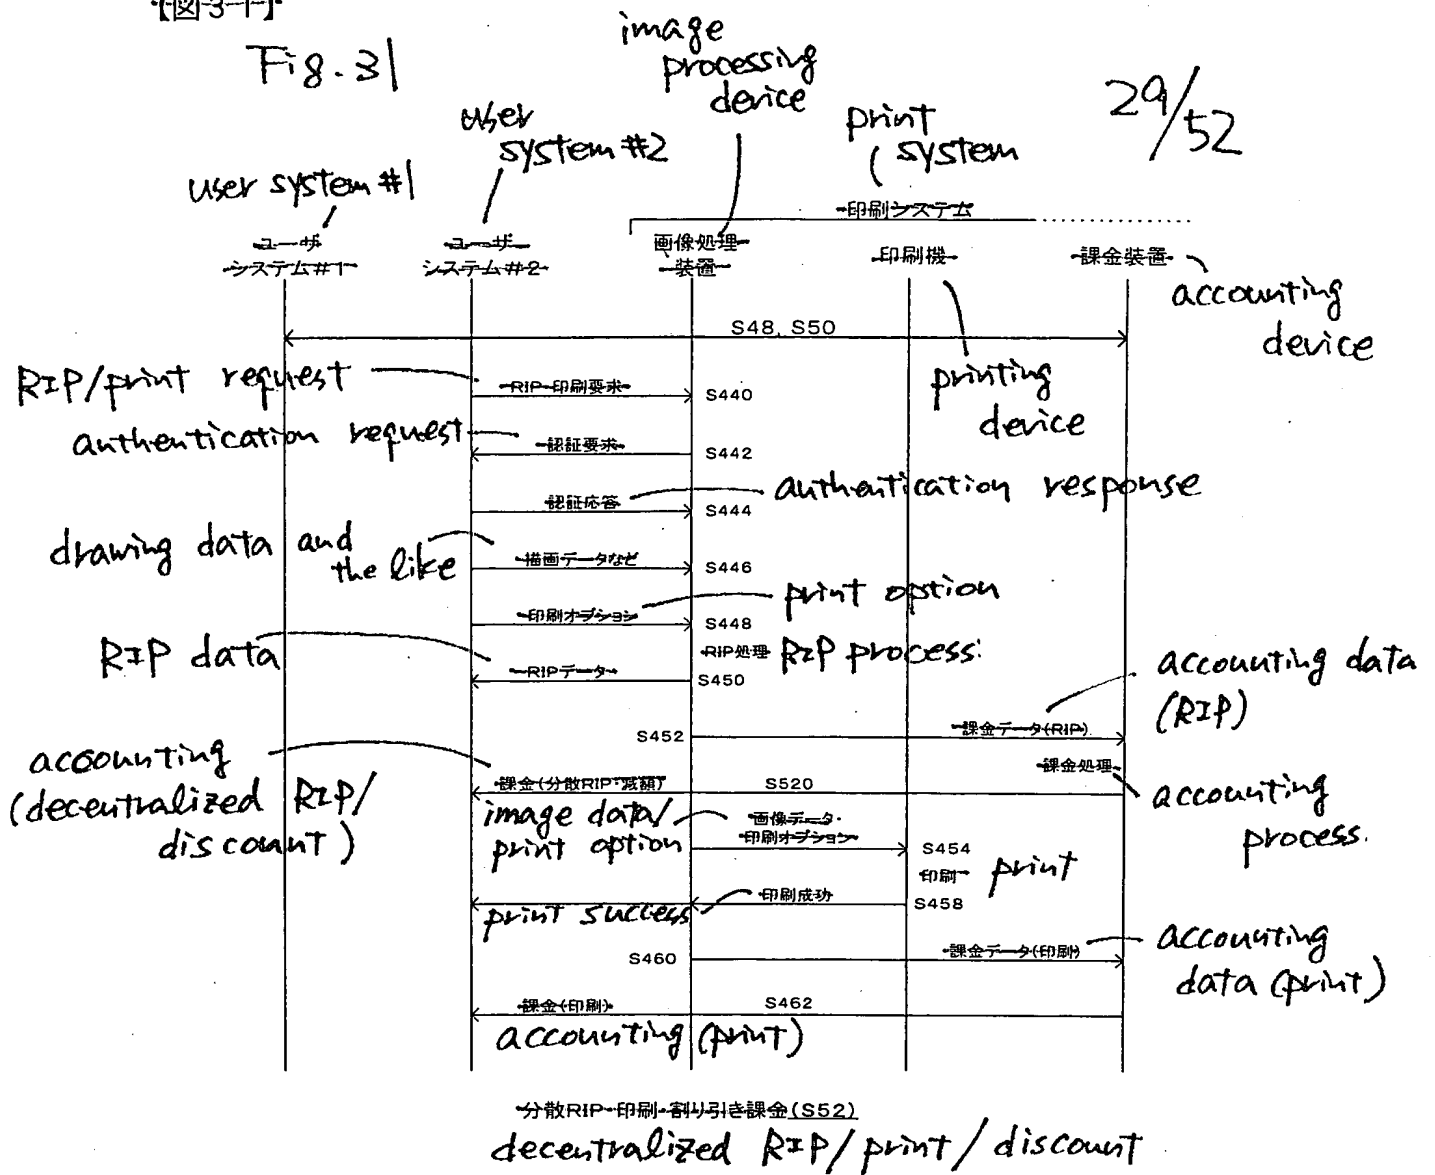 【図31】
Fig. 31
29/52
image
processing
device
user
system #2
print
system
user system #1
印刷システム
ユーザ
システム#1
ユーザ
システム#2
画像処理
装置
印刷機
課金装置
accounting
device
S48, S50
printing
device
RIP/print request
RIP・印刷要求
S440
authentication request
認証要求
S442
認証応答
S444
authentication response
drawing data and
the like
描画データなど
S446
印刷オプション
S448
print option
RIP data
RIP処理
RIP process
RIPデータ
S450
accounting data
(RIP)
S452
課金データ(RIP)
accounting
(decentralized RIP/
discount)
課金処理
accounting
process
課金(分散RIP・減額)
S520
image data/
print option
画像データ・
印刷オプション
S454
印刷
print
印刷成功
S458
print success
S460
課金データ(印刷)
accounting
data (print)
課金(印刷)
S462
accounting (print)
分散RIP・印刷・割り引き課金(S52)
decentralized RIP/print/discount